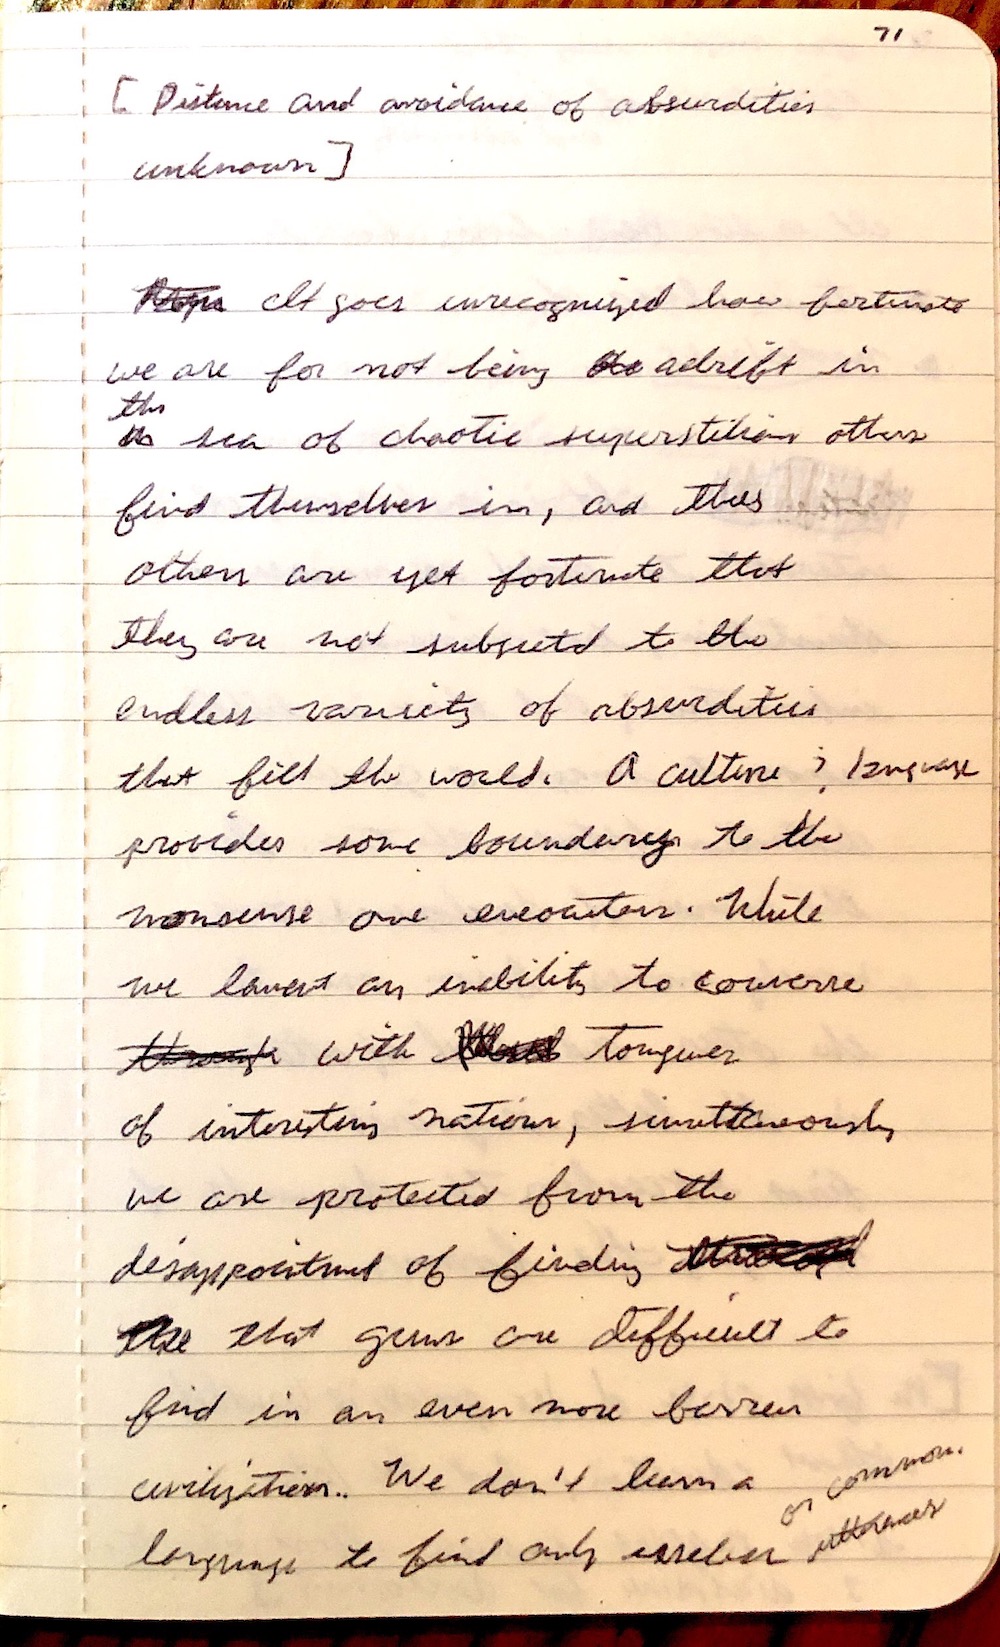 71
[Distance and avoidance of absurdities
unknown]
It goes unrecognized how fortunate
we are for not being adrift in
the
sea of chaotic superstitions others
find themselves in, and thus
others are yet fortunate that
they are not subjected to the
endless variety of absurdities
that fill the world. A culture & language
provides some boundary to the
nonsense one encounters. While
we lament an inability to converse
with tongues
of interesting nations, simultaneously
we are protected from the
disappointment of finding
that gems are difficult to
find in an even more barren
civilization. We don't learn a
or common.
language to find only useless utterances